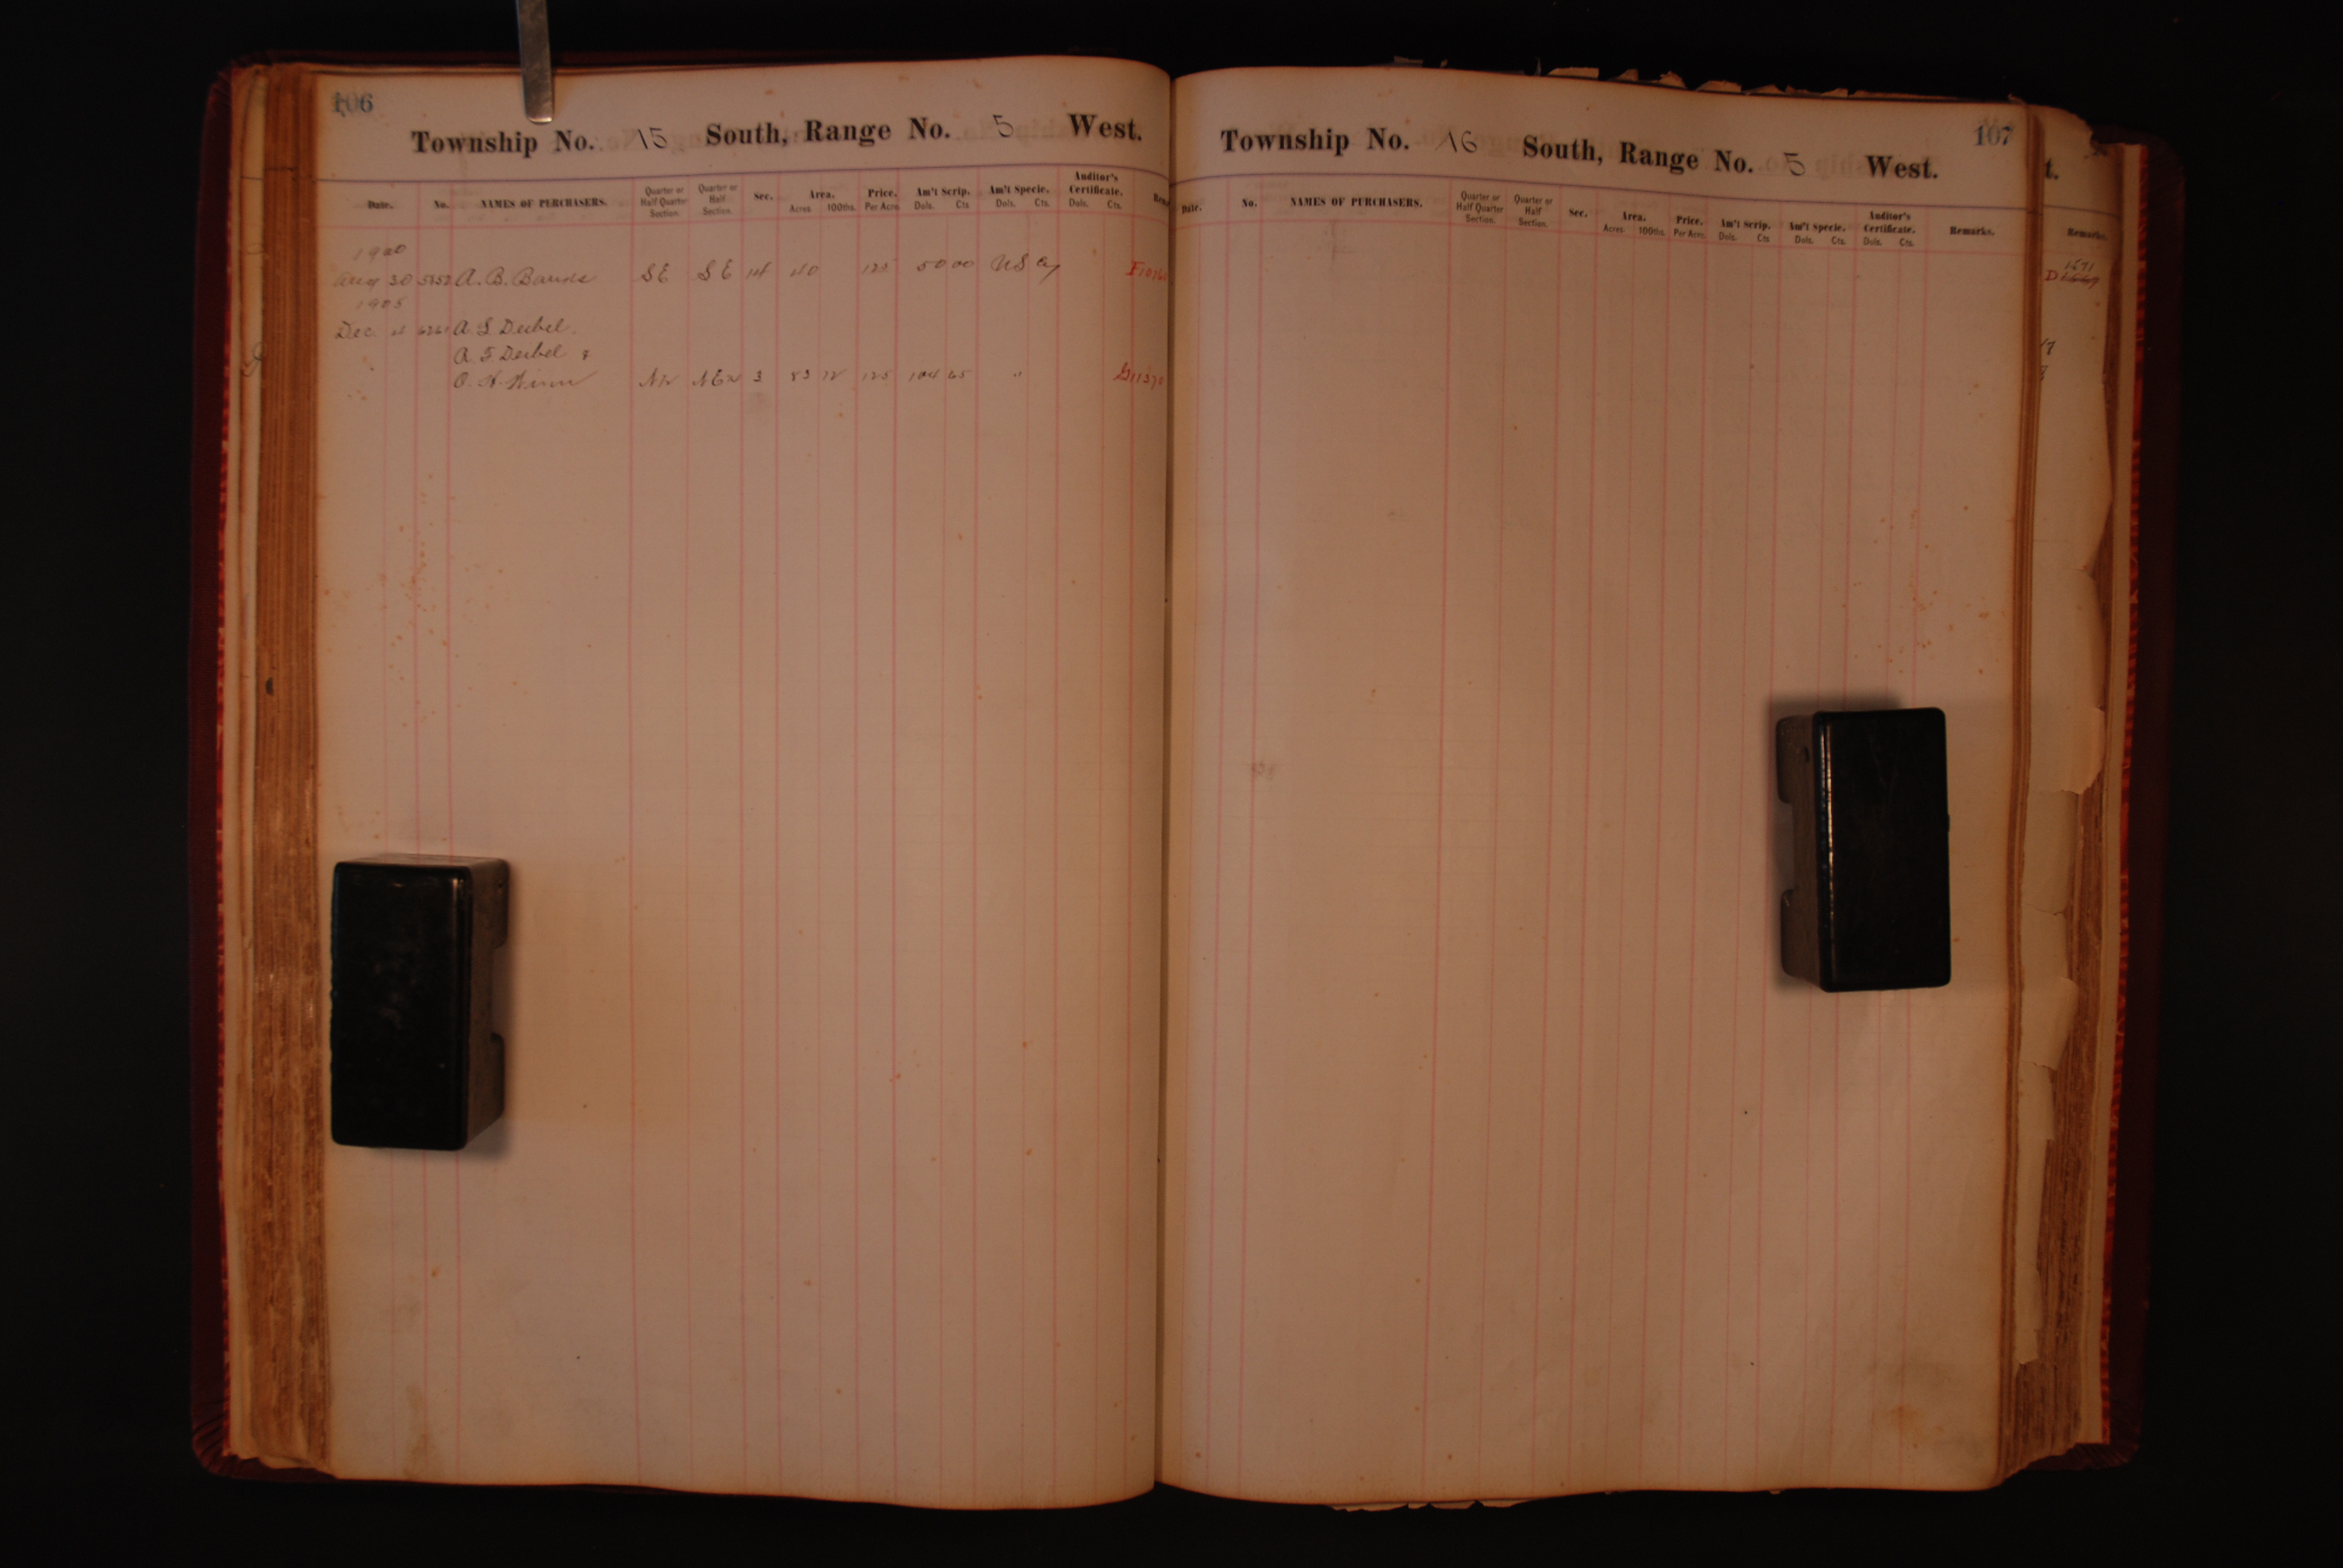 106
Township No. 15 South, Range No. 5 West.
Date. No. NAMES OF PURCHASERS. Quarter or Half Quarter Section. Quarter or Half Section. Sec. Area. Acres 100ths. Price. Per Acre Am't Scrip. Dols. Cts. Am't Specie. Dols. Cts. Auditor's Certificate. Dols. Cts.
1900
Aug 30 A. B. Banks SE SE 14 40 125 50 00 US Cy
1905
Dec. A. L. Deibel
A. F. Deibel &
O. H. 3 83 72 125 104 65 "
107
Township No. 16 South, Range No. 5 West.
Date. No. NAMES OF PURCHASERS. Quarter or Half Quarter Section. Quarter or Half Section. Sec. Area. Acres 100ths. Price. Per Acre. Am't Scrip. Dols. Cts Am't Specie. Dols. Cts. Auditor's Certificate. Dols. Cts. Remarks.
t.
Remarks.
1671
D